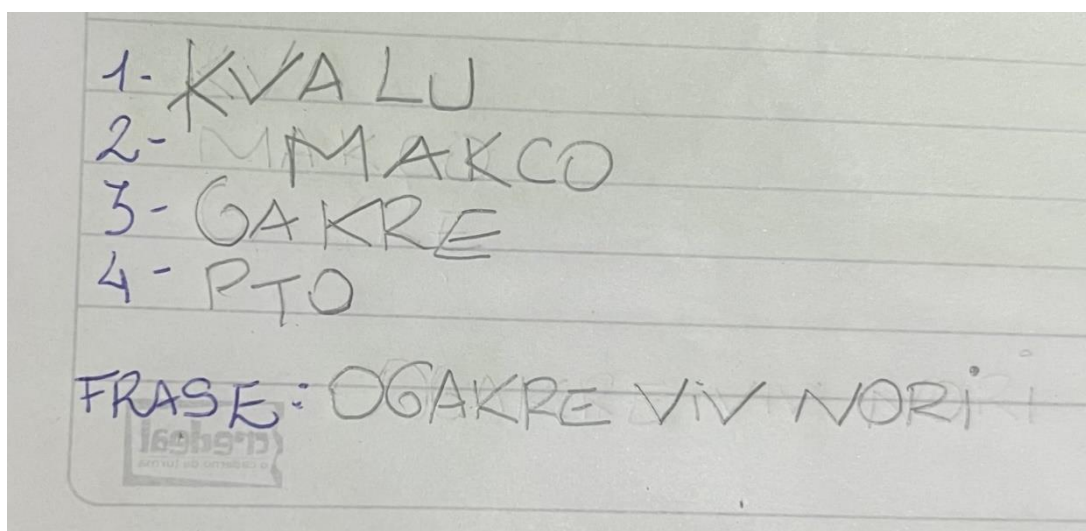 1- KVALU
2- MAKCO
3- GAKRE
4- PTO
FRASE: OGAKRE ViV NORi
credeal